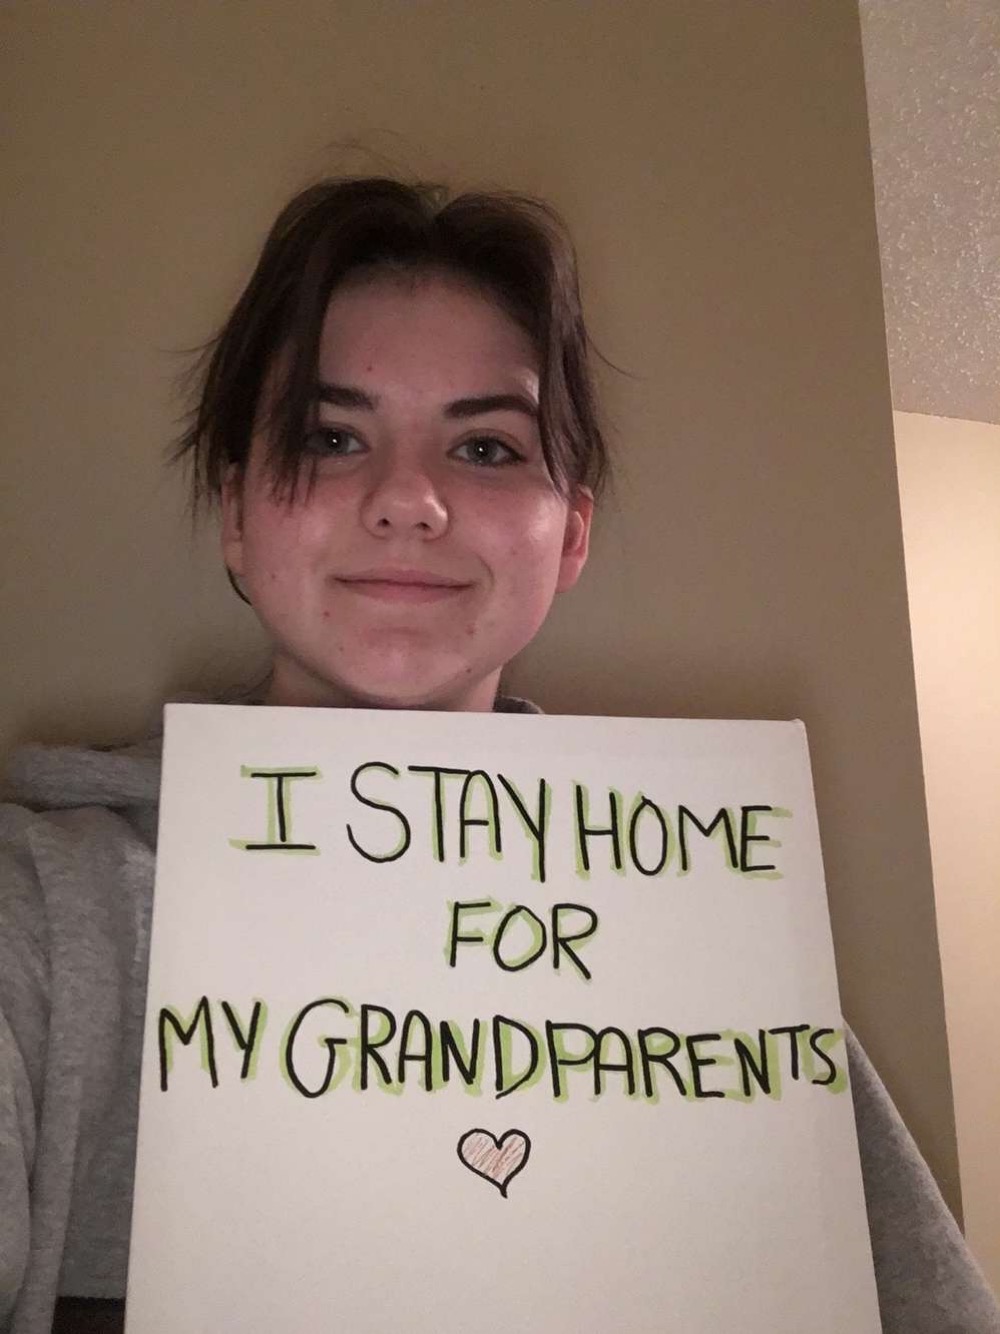 I STAY HOME
FOR
MY GRANDPARENTS